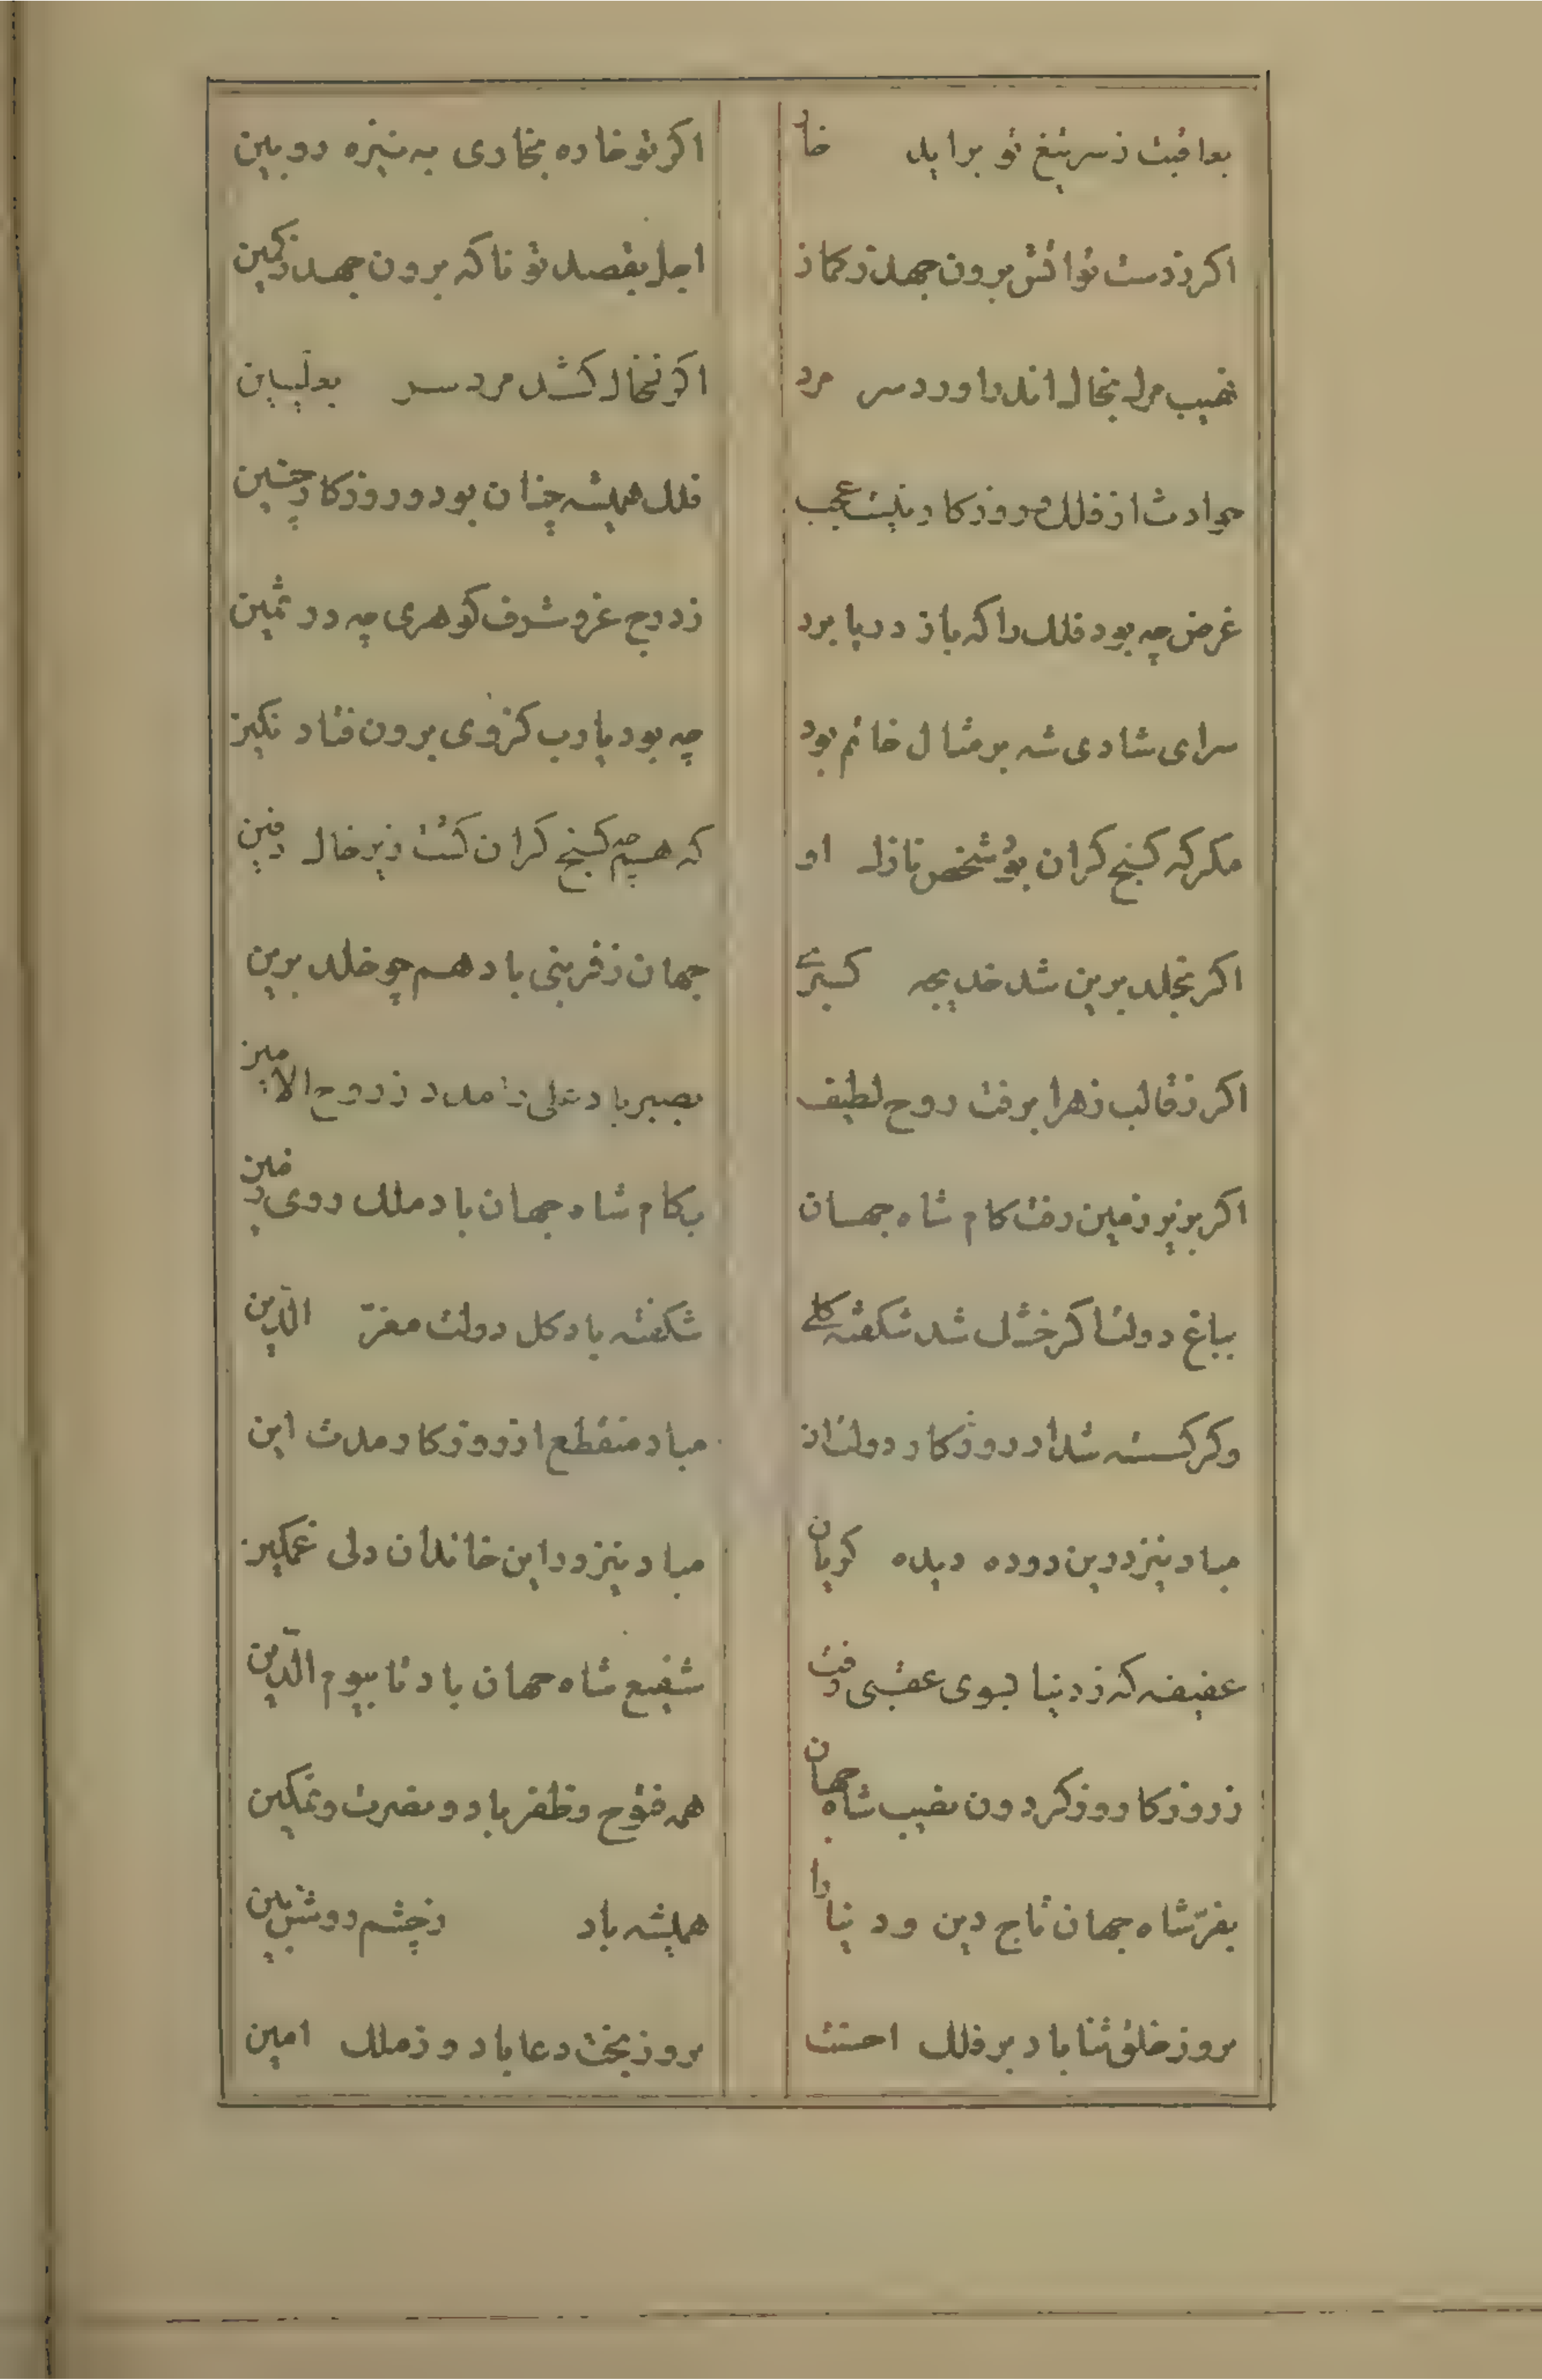 بعاقبت ز سر تیغ تو براید خار
اکر تو خاره بخاری به نیزه روبین
اکر ز دست تو اتش برون جهد ز کمان
اجل بقصد تو ناکه برون جهد ز کمین
نهیب مرک بخاک اندر اورد سر مرد
اکر بخاک کشد مرد سر بعلیین
حوادث از فلک و روزکار نیست عجب
فلک همیشه چنان بود و روزکار چنین
غرض چه بود فلک را که باز دریا برد
ز درج عز و شرف کوهری چه در ثمین
سرای شادی شه بر مثال خاتم بود
چه بود یارب کز وی برون فتاد نکین
مکر که کنج کران بود شخص نازک او
که همچه کنج کران کشت زیر خاک دفین
اکر بخلد برین شد خدیجه کبری
جهان ز فر بنی باد هم چو خلد برین
اکر ز قالب زهرا برفت روح لطیف
بصبر باد علی را مدد ز روح الامین
اکر بزیر زمین رفت کام شاه جهان
بکام شاه جهان باد ملک روی زمین
بباغ دولت اکر خشک شد شکفته کلی
شکفته باد کل دولت معز الدین
وکر کسسته شد از روزکار دولت ان
مباد منقطع از روزکار مدت این
مباد نیز درین دوده دیده کریان
مباد نیز در این خاندان دلی غمکین
عفیفه که ز دنیا بسوی عقبی رفت
شفیع شاه جهان باد تا بیوم الدین
ز روزکار و ز کردون نصیب شاه جهان
همه فتوح و ظفر باد و نصرت و تمکین
بفر شاه جهان تاج دین و دنیا را
همیشه باد ز چشم روشن بین
بروز خلق ثنا باد بر فلک احسنت
بروز بخت دعا باد و ز ملک امین